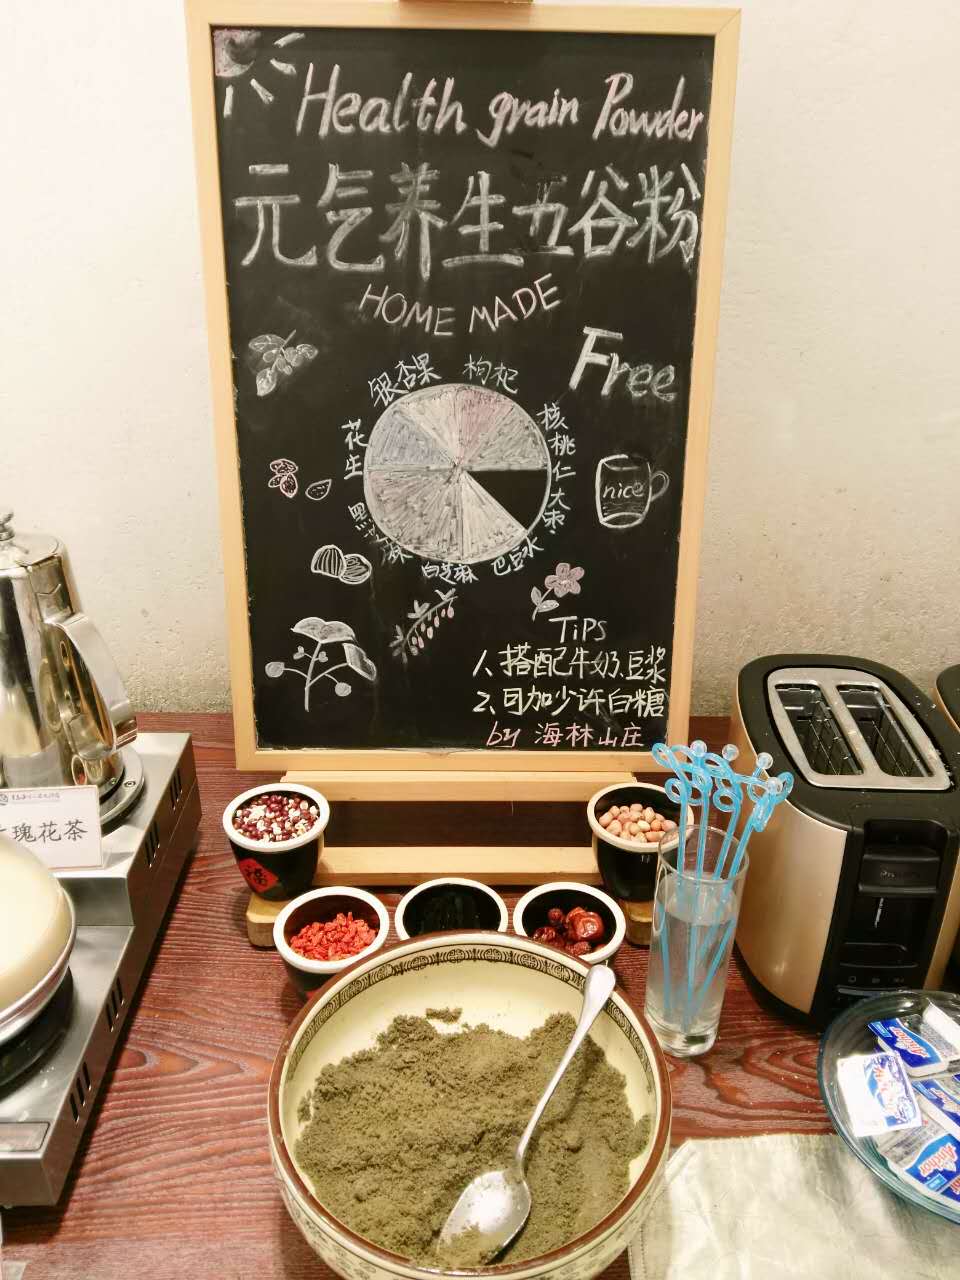 Health grain Powder
元气养生五谷粉
HOME MADE
Free
银杏果
枸杞
核桃仁
大枣
花生
黑芝麻
白芝麻
巴旦木
nice
TiPS
1、搭配牛奶、豆浆
2、可加少许白糖
by 海林山庄
瑰花茶
福
PHILIPS
Anchor
Anchor